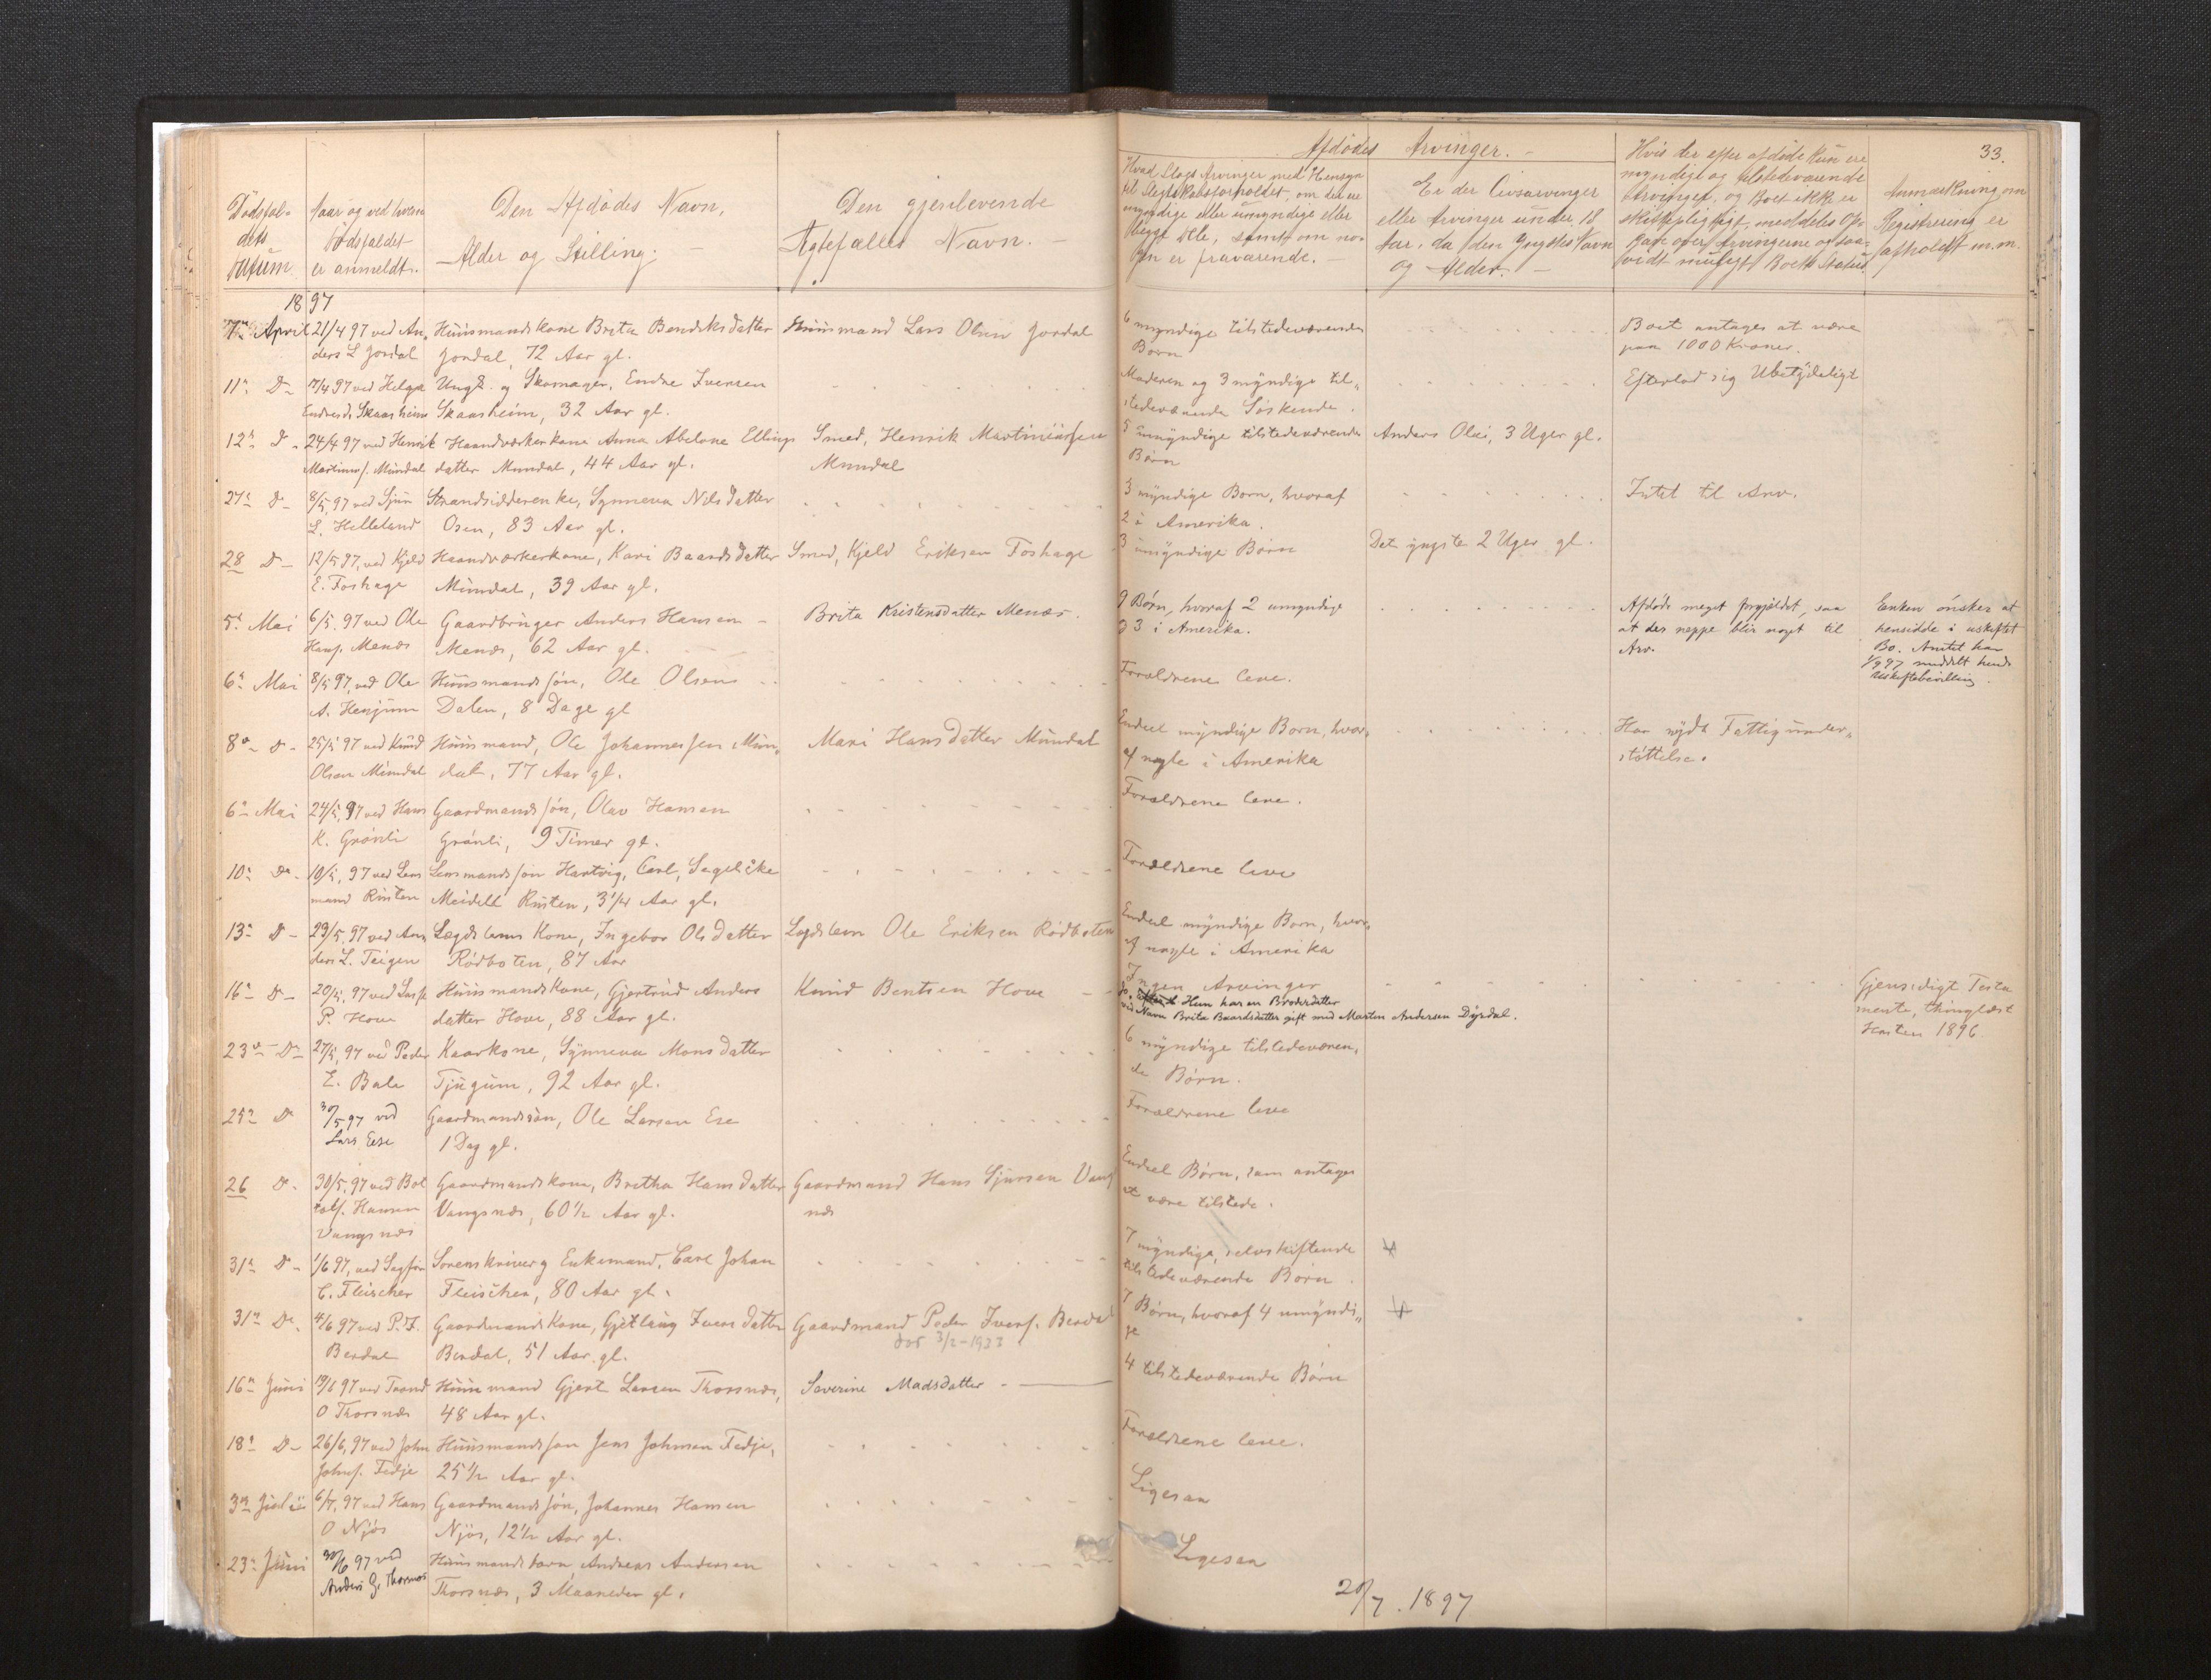 33.
Dødsfal-
dets
Datum
Naar og ved hvem
Dødsfaldet
er anmeldt.
Den Afdødes Navn,
Alder og Stilling.
Den gjenlevende
Ægtefælles Navn.
Afdødes Arvinger.
Hvad Slags Arvinger med Hensyn
til Slegtskabsforholdet, om det ere
myndige eller umyndige eller
begge Dele, samt om no-
gen er fraværende.
Er der Livsarvinger
eller Arvinger under 18
Aar, da den Yngstes Navn
og Alder.
Hvis der efter afdøde kun ere
myndige og tilstedeværende
Arvinger, og Boet ikke er
skiftepligtigt, meddeles Op-
gave over Arvingerne og saa-
vidt muligt Boets Status
Anmærkning om
Registrering er
afholdt m.m.
1897
7de April 21/4 97 ved An- Huusmandskone Brita Bendiksdatter Huusmand Lars Olsen Jordal 6 myndige tilstedeværende Boet antages at være
ders L Jordal Jordal, 72 Aar gl. Børn paa 1000 Kroner.
11te Do 17/4 97 ved Helga Ungk. og Skomager, Endre Iversen Moderen og 3 myndige til- Efterlod sig Ubetydeligt
Endresd. Skaasheim Skaasheim, 32 Aar gl. stedeværende Søskende.
12te Do 24/4 97 ved Henrik Haandværkerkone Anna Abelone Ellings Smed, Henrik Martinussen 5 umyndige tilstedeværende Anders Olai, 3 Uger gl.
Martinus. Mundal datter Mundal, 44 Aar gl. Mundal Børn
27de Do 8/5 97 ved Sjur Strandsidderenke, Synneva Nilsdatter 3 myndige Born, hvoraf Intet til Arv.
L. Helleland Osen, 83 Aar gl. 2 i Amerika.
28 Do 12/5 97, ved Kjeld Haandværkerkone, Kari Baardsdatter Smed, Kjeld Eriksen Foshage 3 umyndige Børn Det yngste 2 Uger gl.
E. Foshage Mundal, 39 Aar gl.
5te Mai 6/5 97 ved Ole Gaardbruger Anders Hansen Brita Kristensdatter Menæs. 9 Børn, hvoraf 2 umyndige Afdøde meget forgjældet, saa Enken ønsker at
Hans. Menæs Menæs, 62 Aar gl. og 3 i Amerika. at der neppe blir noget til hensidde i uskiftet
Arv. Bo. Amtet har
1/9 97 meddelt hende
uskiftebevilling.
6te Mai 8/5 97, ved Ole Huusmandssøn, Ole Olsen Forældrene leve.
A. Henjum Dalen, 8 Dage gl
8de Do 25/5 97 ved Knud Huusmand, Ole Johannessen Mun- Mari Hansdatter Mundal Endeel myndige Born, hvor- Har nydt Fattigunder-
Olsen Mundal dal, 77 Aar gl. af nogle i Amerika støttelse.
6te Mai 24/5, 97 ved Hans Gaardmandssøn, Olav Hansen Forældrene leve.
K. Grønli Grønli, 9 Timer gl.
10de Do 10/5, 97 ved Lens Lensmandssøn Hartvig, Carl, Segelcke Forældrene leve
mand Rusten Meidell Rusten, 3 1/4 Aar gl.
13de Do 29/5, 97 ved An Lægdslems Kone, Ingebor Olsdatter Lægdslem Ole Eriksen Rødboten Endeel myndige Born, hvor-
ders L. Teigen Rødboten, 87 Aar af nogle i Amerika
16de Do 20/5, 97 ved Lasse Huusmandskone, Gjertrud Anders Knud Bentsen Hove Ingen Arvinger Gjensidigt Testa
P. Hove datter Hove, 88 Aar gl. Hun har en Broderdatter mente, thinglæst
ved Navn Brita Baardsdatter gift med Morten Andersen Dyrdal. Høsten 1896
23de Do 27/5, 97 ved Peder Kaarkone, Synneva Monsdatter 6 myndige tilstedeværen-
E. Bale Tjugum, 92 Aar gl. de Børn.
25de Do 30/5 97 ved Gaardmandssøn, Ole Larsen Ese Forældrene leve
Lars Ese 1 Dag gl.
26 Do 30/5, 97 ved Bot Gaardmandskone, Bretha Hansdatter Gaardmand Hans Sjursen Vangs Endeel Børn, som antages
tolf. Hansen Vangsnæs, 60 1/2 Aar gl. næs at være tilstede.
Vangsnæs
31te Do 1/6 97, ved Sagfør Sorenskriver og Enkemand, Carl Johan 7 myndige, selvskiftende
C. Fleischer Fleischer, 80 Aar gl. tilstedeværende Børn.
31te Do 4/6 97 ved P. I. Gaardmandskone, Gjetlaug Iversdatter Gaardmand Peder Ivers. Berdal 7 Børn, hvoraf 4 umyndi-
Berdal Berdal, 51 Aar gl. død 3/2 - 1923 ge
16de Juni 19/6 97 ved Trond Huusmand Gjert Larsen Thorsnæs, Severine Madsdatter 4 tilstedeværende Børn
O Thorsnæs 48 Aar gl.
18de Do 26/6, 97 ved John Huusmandssøn Jens Johnsen Fedje, Forældrene leve.
Johns. Fedje 25 1/2 Aar gl.
3die Juli 6/7, 97 ved Hans Gaardmandssøn, Johannes Hansen Ligesaa
O Njøs Njøs, 12 1/2 Aar gl.
23de Juni 30/6 97 ved Huusmandsbarn Andreas Andersen Ligesaa
Anders G. Thorsnæs Thorsnæs, 3 Maaneder gl.
20/7. 1897